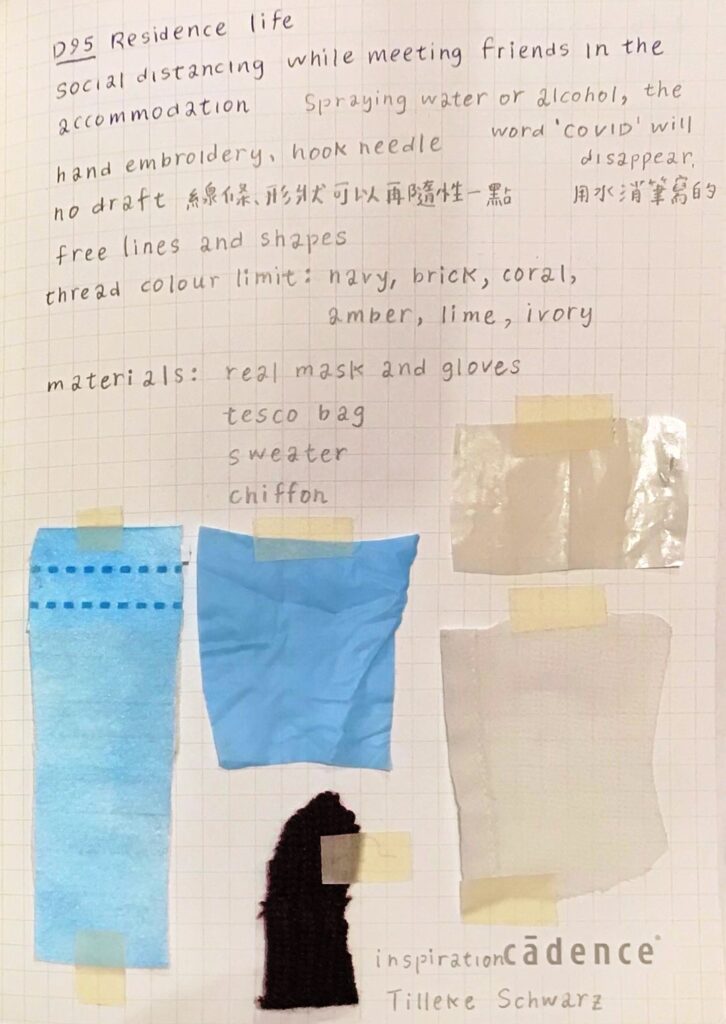 D95 Residence life
social distancing while meeting friends in the
accommodation
Spraying water or alcohol, the
word 'COVID' will
disappear.
用水消筆寫的
hand embroidery、hook needle
no draft 線條、形狀可以再隨性一點
free lines and shapes
thread colour limit: navy, brick, coral,
amber, lime, ivory
materials: real mask and gloves
tesco bag
sweater
chiffon
inspiration cādence®
Tilleke Schwarz